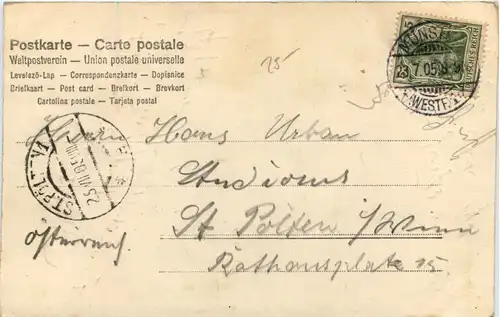 Postkarte — Carte postale
Weltpostverein — Union postale universelle
Levelező-Lap — Correspondenzkarte — Dopisnice
Briefkaart — Post card — Brefkort — Brevkort
Cartolina postale — Tarjeta postal
25
MÜNST
7.05
(WESTF.)
DEUTSCHES REICH
Herrn Hans Urban
St Pölten / Wien
Rathausplatz 15
Österreich
ST. PÖLTEN
25 VII 05